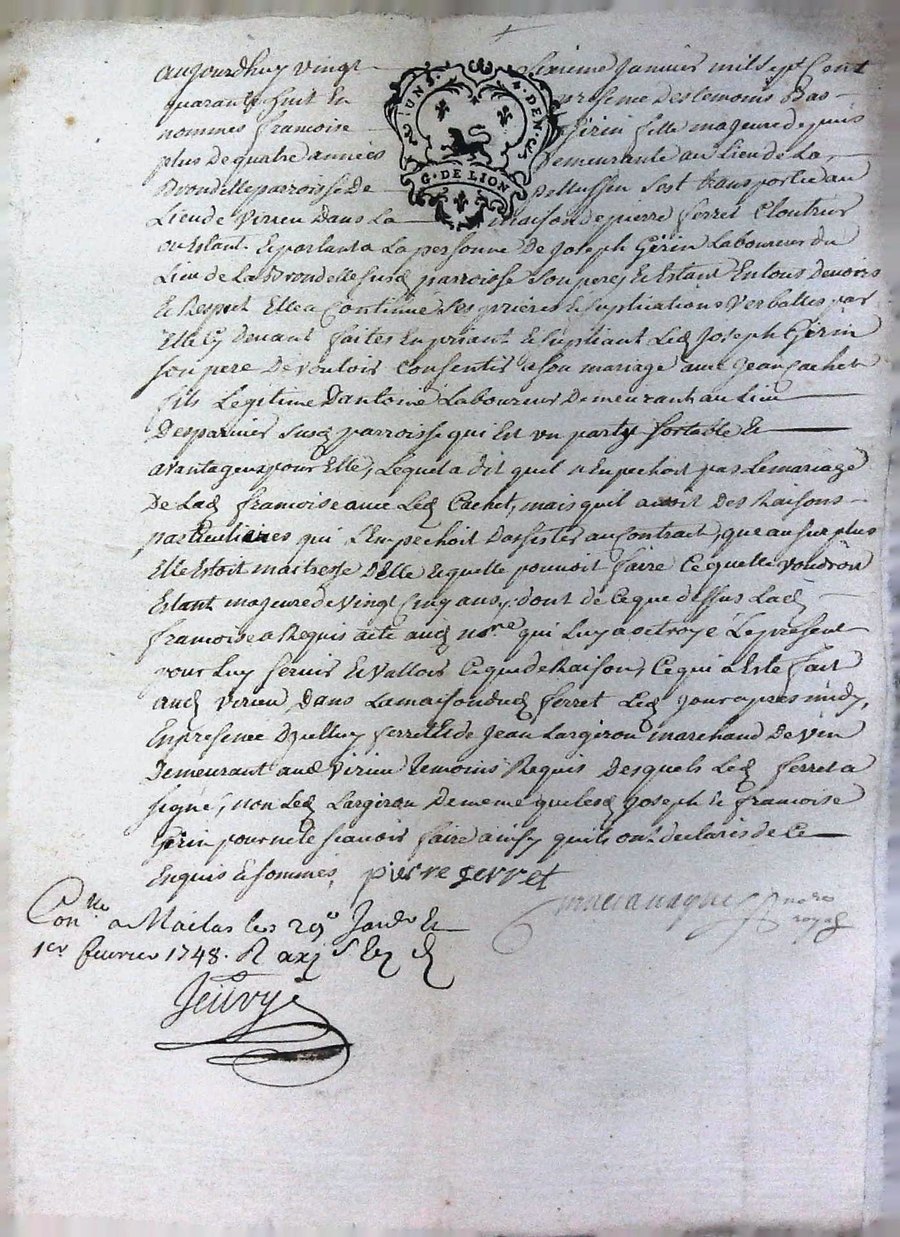 aujourdhuy vingt sixieme janvier mil sept Cent
quarante huit En presence des temoins bas
nommes francoise Gerin fille majeure depuis
plus de quatre années Demeurante au Lieu de La
Brondelle parroisse De Pellussen s'est transportée au
Lieu de virieu Dans La maison de pierre ferret Cloutrier
ou Estant Et parlant a La personne De Joseph Gerin Laboureur du
Lieu de La Brondelle susd parroisse son pere, Et Estant En tous devoirs
Et Respect Elle a Continué ses prieres Et suplications verballes par
Elle Cy devant faites En priant Et supliant Led Joseph Gerin
son pere De vouloir Consentir a son mariage avec Jean Cachet
fils Legitime D'antoine Laboureur Demeurant au Lieu
Desparmier susd parroisse qui Est un party sortable Et
avantageux pour Elle, Lequel a dit quil n'Enpechoit pas Le mariage
De Lad francoise avec Led Cachet, mais quil avoit Des Raisons
particulieres qui L'Enpechoit D'assister au Contract, que au surplus
Elle Estoit maitresse D'Elle Et quelle pouvoit faire Ce quelle voudroit
Estant majeure de vingt Cinq ans, dont de Ce que dessus Lad
francoise a Requis acte aud no.re qui Luy a octroyé Le present
pour Luy servir Et valloir Ce que de Raison, Ce qui a Esté fait
aud virieu Dans La maison dud ferret Led jour apres midy,
En presence D'yelluy ferret Et de Jean Largiron marchand De vin
Demeurant aud virieu temoins Requis Desquels Led ferret a
signé, non Led Largiron De meme que lesd Joseph Et francoise
Gerin pour ne le scavoir faire ainsy quils ont declarés de Ce
Enquis Et sommés,
pierre ferret
no.re
royal
Con.lle a Maclas les 29e Janv.r Et
1er fevrier 1748. R